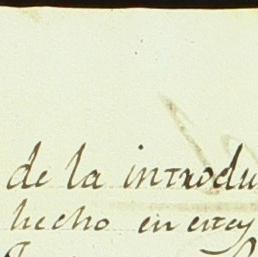 de la introdu
hecho en estey